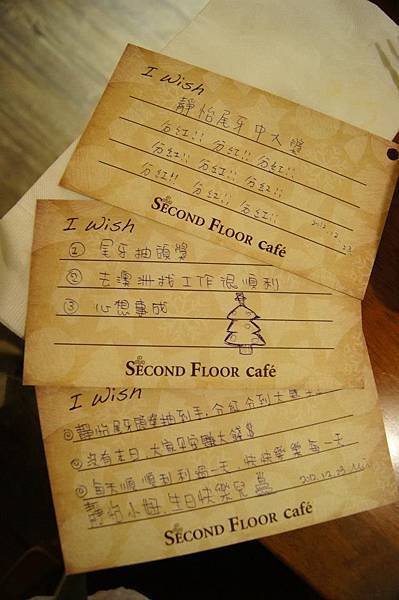 I Wish
靜怡尾牙中大獎
分紅!! 分紅!! 分紅!!
分紅!! 分紅!! 分紅!!
分紅!! 分紅!! 分紅!!
2012.12.23
SECOND FLOOR café
I Wish
① 尾牙抽頭獎
② 去澳洲找工作很順利
③ 心想事成
SECOND FLOOR café
I Wish
① 靜怡尾牙頭獎抽到手,分紅分到
② 沒有末日,大家平安賺大錢$
③ 每天順順利利過一天,快快樂樂每一天
靜怡小妞 生日快樂
2012.12.23
SECOND FLOOR café